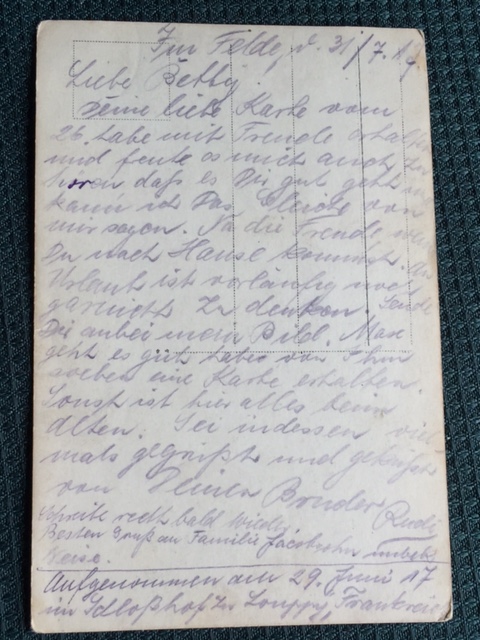 Im Felde, d. 31/7.17.
Liebe Betty
Deine liebe Karte vom
26. habe mit Freude erhalten
und freute es mich auch zu
hören daß es Dir gut geht und
kann ich Das Gleiche von
mir sagen. Na die Freude wenn
Du nach Hause kommst. An
Urlaub ist vorläufig noch
garnicht zu denken. Sende
Dir anbei mein Bild. Max
geht es gut habe von Ihm
soeben eine Karte erhalten.
Sonst ist hier alles beim
Alten. Sei indessen viel
mals gegrüßt und geküßt
von Deinem Bruder Rudi
Schreibe recht bald wieder.
Besten Gruß an Familie Jacobsohn
Aufgenommen am 29. Juni 17
im Schloßhof zu Louppy, Frankreich